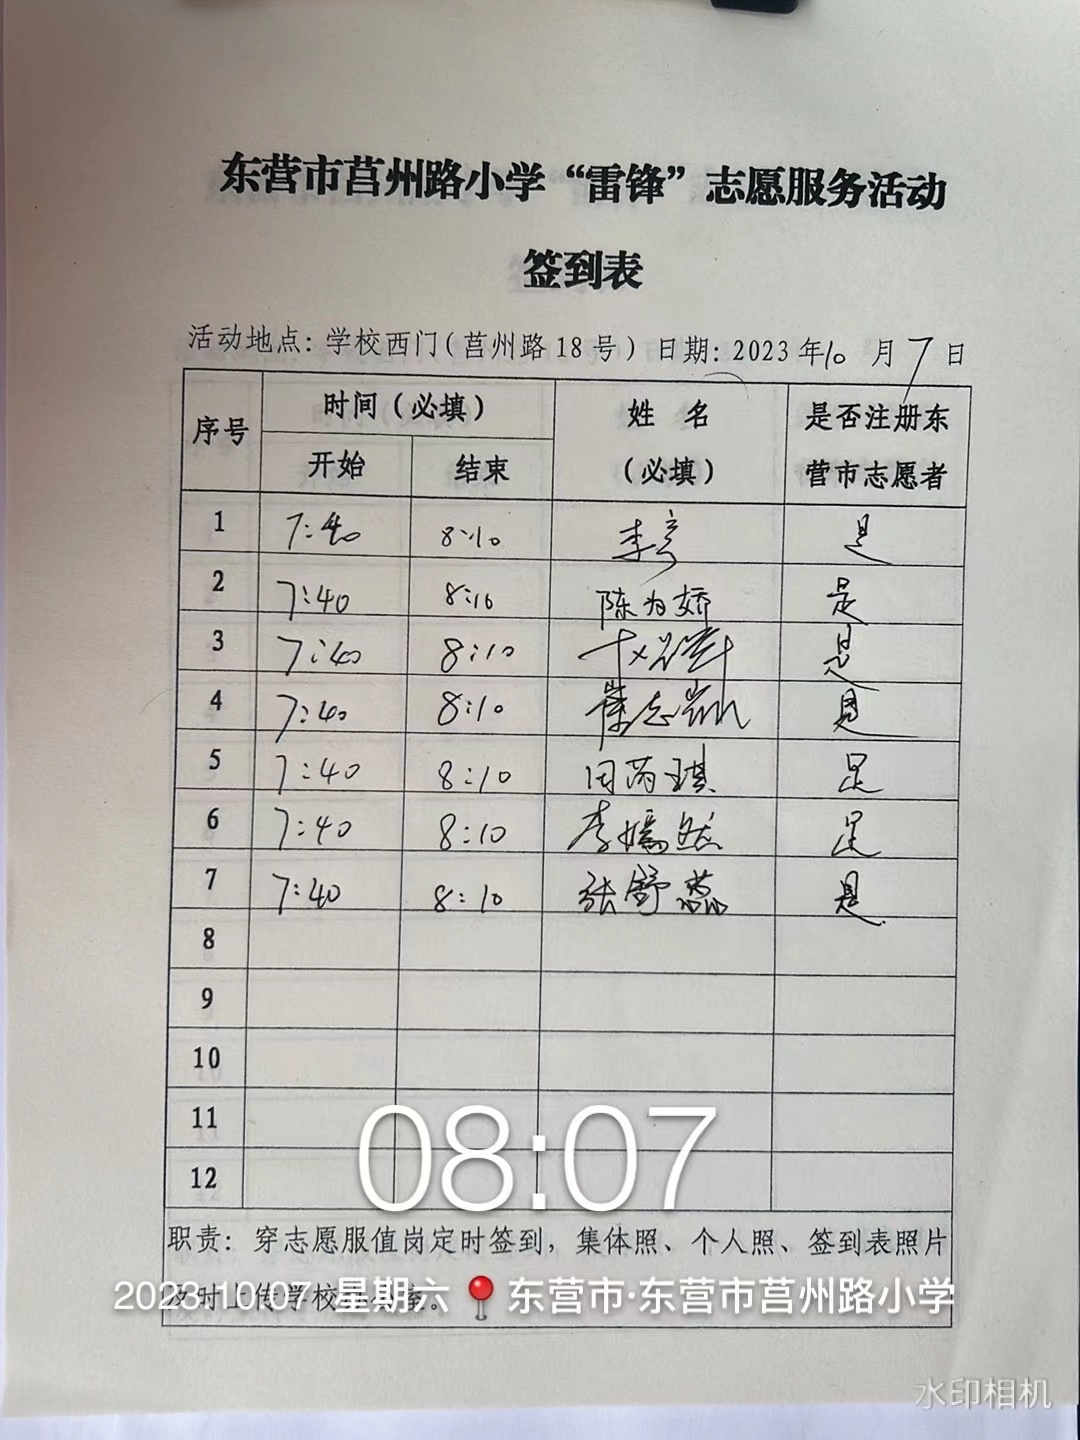 东营市莒州路小学“雷锋”志愿服务活动
签到表
活动地点：学校西门（莒州路18号）日期：2023年10月7日
序号 时间（必填） 姓 名 是否注册东
开始 结束 （必填） 营市志愿者
1 7:40 8:10 李彦 是
2 7:40 8:10 陈为娇 是
3 7:40 8:10 是
4 7:40 8:10 是
5 7:40 8:10 周芮琪 是
6 7:40 8:10 李嫣然 是
7 7:40 8:10 张舒蕊 是
8
9
10
11
12
08:07
职责：穿志愿服值岗定时签到，集体照、个人照、签到表照片
及时上传学校
2023.10.07 星期六 东营市·东营市莒州路小学
水印相机